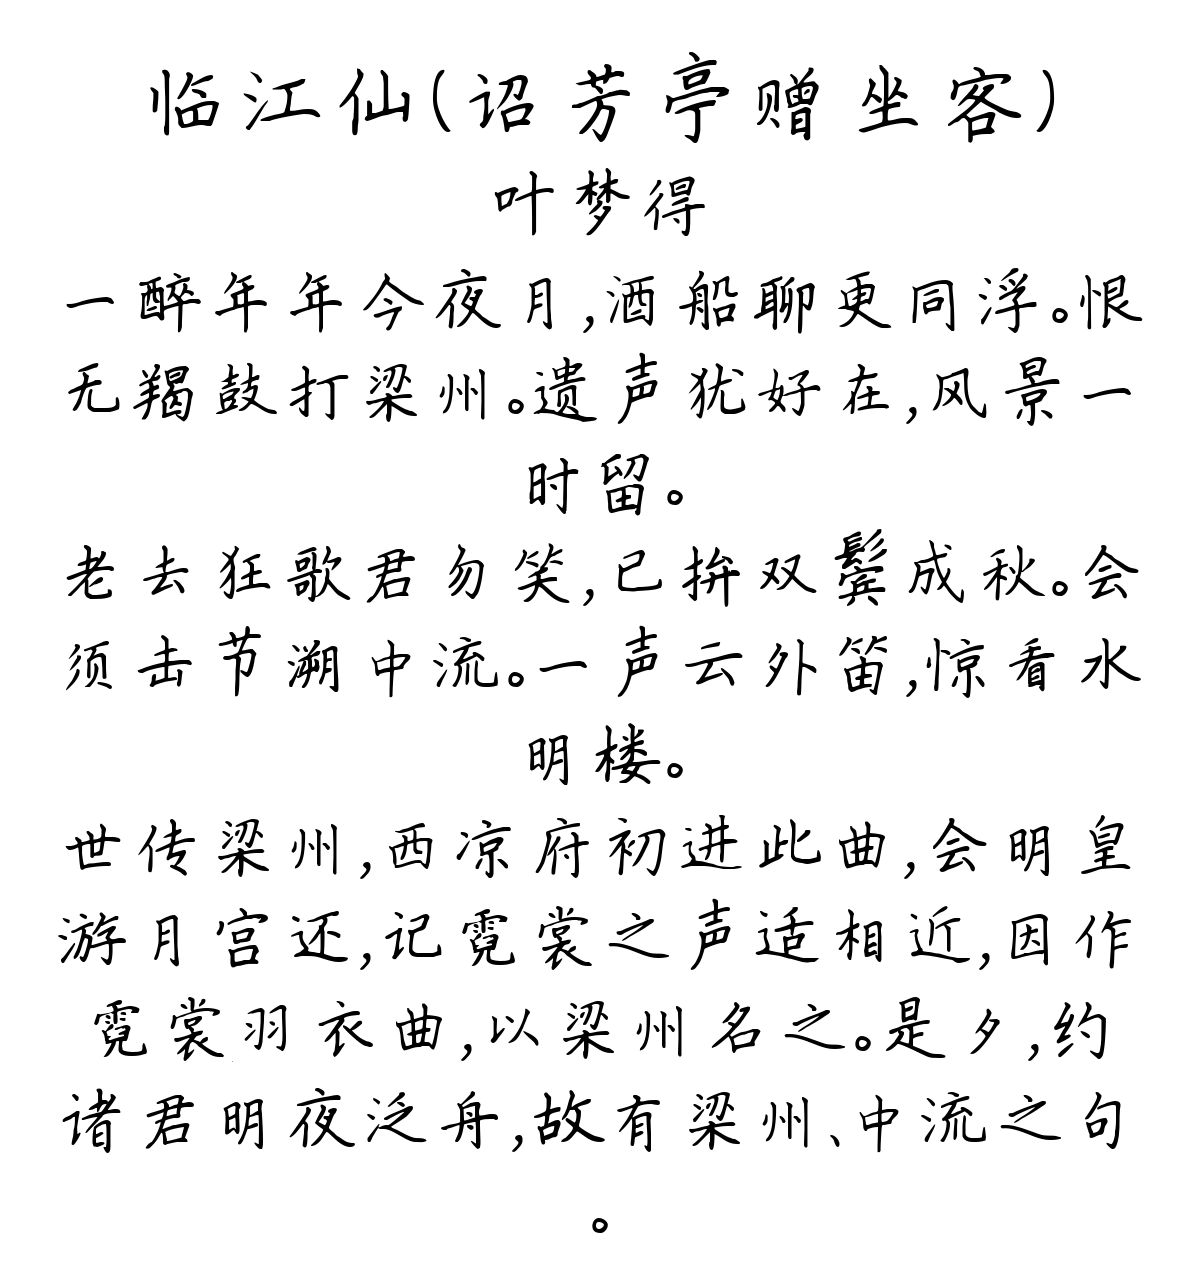 临江仙(诏芳亭赠坐客)
叶梦得
一醉年年今夜月,酒船聊更同浮。恨
无羯鼓打梁州。遗声犹好在,风景一
时留。
老去狂歌君勿笑,已拚双鬓成秋。会
须击节溯中流。一声云外笛,惊看水
明楼。
世传梁州,西凉府初进此曲,会明皇
游月宫还,记霓裳之声适相近,因作
霓裳羽衣曲,以梁州名之。是夕,约
诸君明夜泛舟,故有梁州、中流之句
。